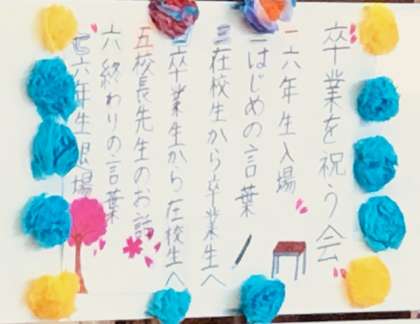 卒業を祝う会
一六年生入場
二はじめの言葉
三在校生から卒業生へ
四卒業生から在校生へ
五校長先生のお話
六終わりの言葉
七六年生退場